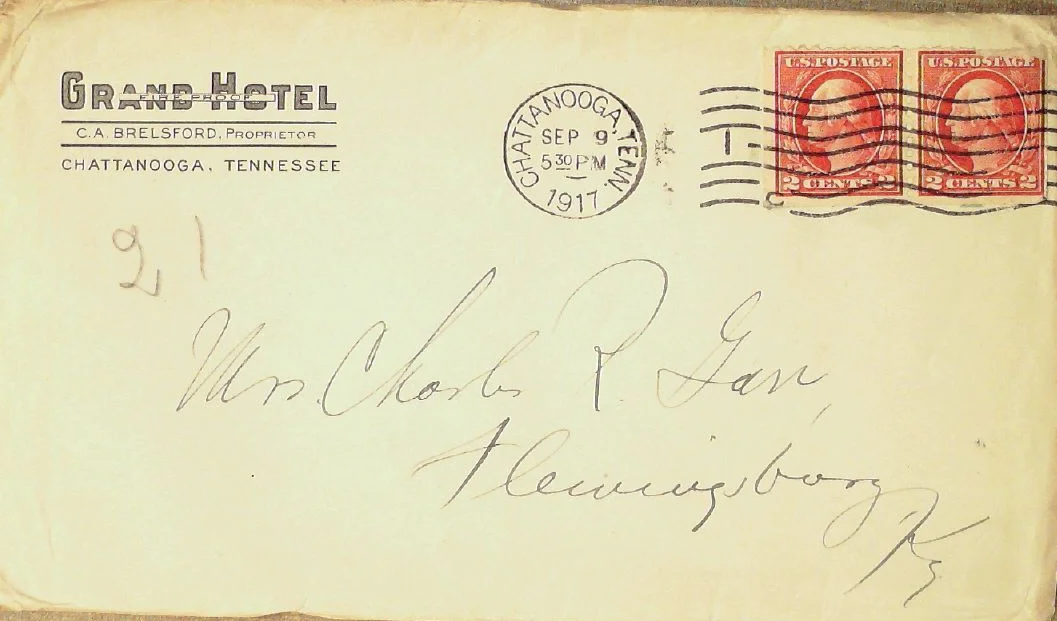 GRAND HOTEL
FIRE PROOF
C.A. BRELSFORD, PROPRIETOR
CHATTANOOGA, TENNESSEE
CHATTANOOGA, TENN.
SEP 9
5 30 PM
1917
1
U.S. POSTAGE
2 CENTS 2
U.S. POSTAGE
2 CENTS 2
21
Mrs. Charles R. Garr,
Flemingsburg
Ky